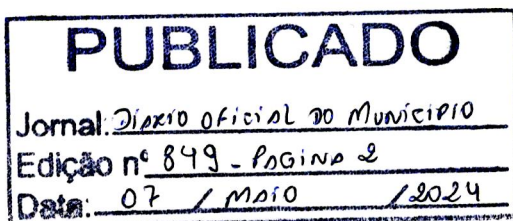 PUBLICADO
Jornal: DIARIO OFICIAL DO MUNICIPIO
Edição nº 849 - PAGINA 2
Data: 07 / MAIO / 2024